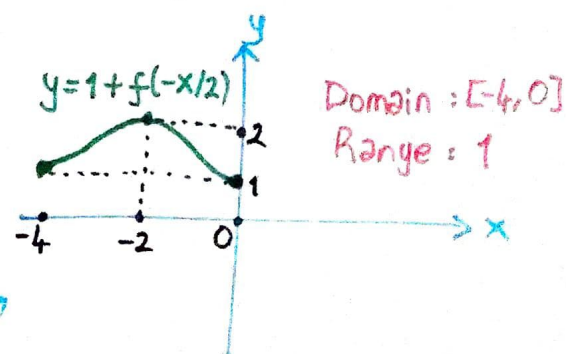 y
y=1+f(-x/2)
Domain : [-4,0]
Range : 1
2
1
-4
-2
0
x